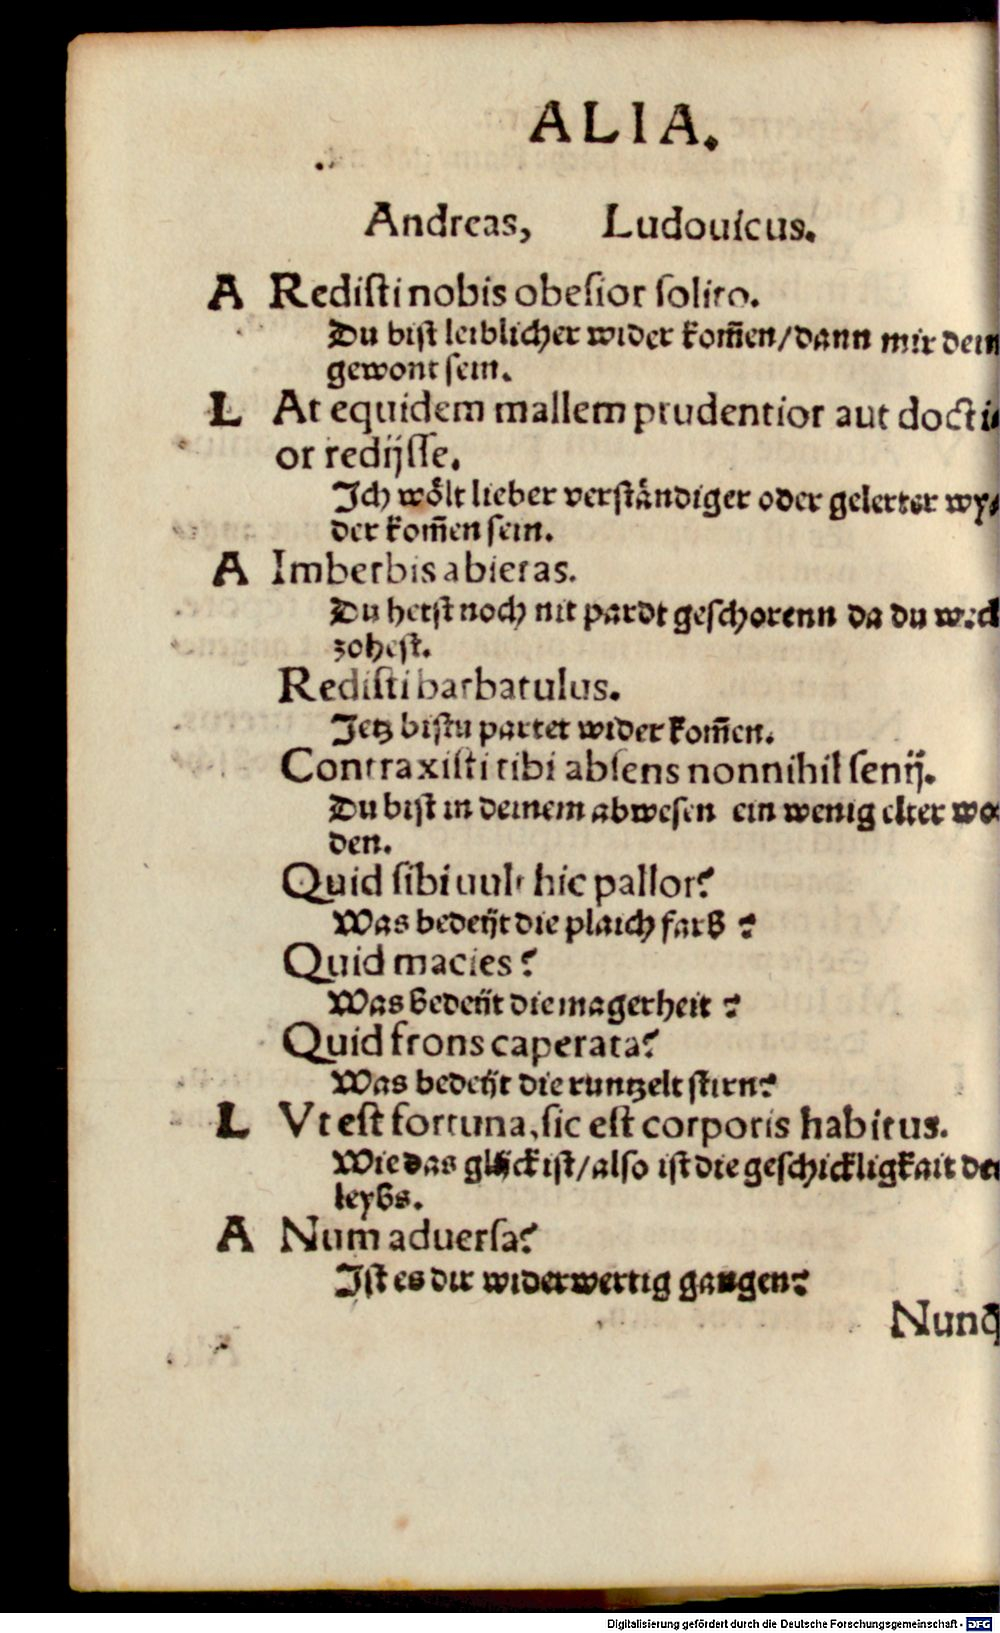 ALIA.
Andreas, Ludouicus.
A Redisti nobis obesior solito.
Du bist leiblicher wider kom̃en/dann mir dein
gewont sein.
L At equidem mallem prudentior aut docti⸗
or redijsse.
Ich wölt lieber verständiger oder gelerter wy⸗
der kom̃en sein.
A Imberbis abieras.
Du hetst noch nit pardt geschorenn da du weck
zohest.
Redisti barbatulus.
Jetz bistu partet wider kom̃en.
Contraxisti tibi absens nonnihil senij.
Du bist in deinem abwesen ein wenig elter wor
den.
Quid sibi uult hic pallor?
Was bedeÿt die plaich farb ?
Quid macies ?
Was bedeÿt die magerheit ?
Quid frons caperata?
Was bedeÿt die runtzelt stirn?
L Vt est fortuna, sic est corporis habitus.
Wie das glück ist/also ist die geschickligkait des
leybs.
A Num aduersa?
Ist es dir widerwertig gangen?
Nunq̃
Digitalisierung gefördert durch die Deutsche Forschungsgemeinschaft - DFG